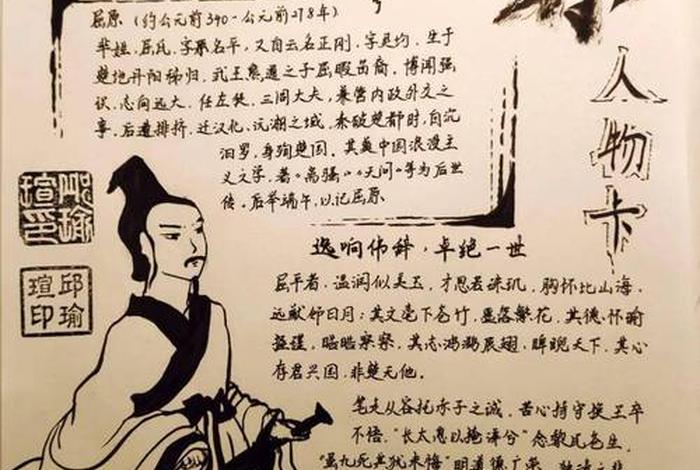 屈原（约公元前340-公元前278年）
芈姓，屈氏，字原名平，又自云名正则，字灵均，生于
楚地丹阳秭归，武王熊通之子屈瑕苗裔，博闻强
识，志向远大，任左徒、三闾大夫，兼管内政外交之
事，后遭排挤，迁汉北、沅湘之域，秦破楚都时，自沉
汨罗，身殉楚国，其奠中国浪漫主
义文学，著《离骚》《天问》等为后世
传，后举端午，以记屈原
人物卡
邱瑜瑄印
邱瑜瑄印
逸响伟辞，卓绝一世
屈平者，温润似美玉，才思若珠玑，胸怀比山海，
远猷仰日月；其文毫下苍竹，墨落繁花，其德怀瑜
握瑾，皓皓察察，其志鸿鹄展翅，睥睨天下，其心
存君兴国，非楚无他。
笔走从容托赤子之诚，苦心持守换王卒
不悟，“长太息以掩涕兮”念黎民苍生，
“虽九死其犹未悔”明道德